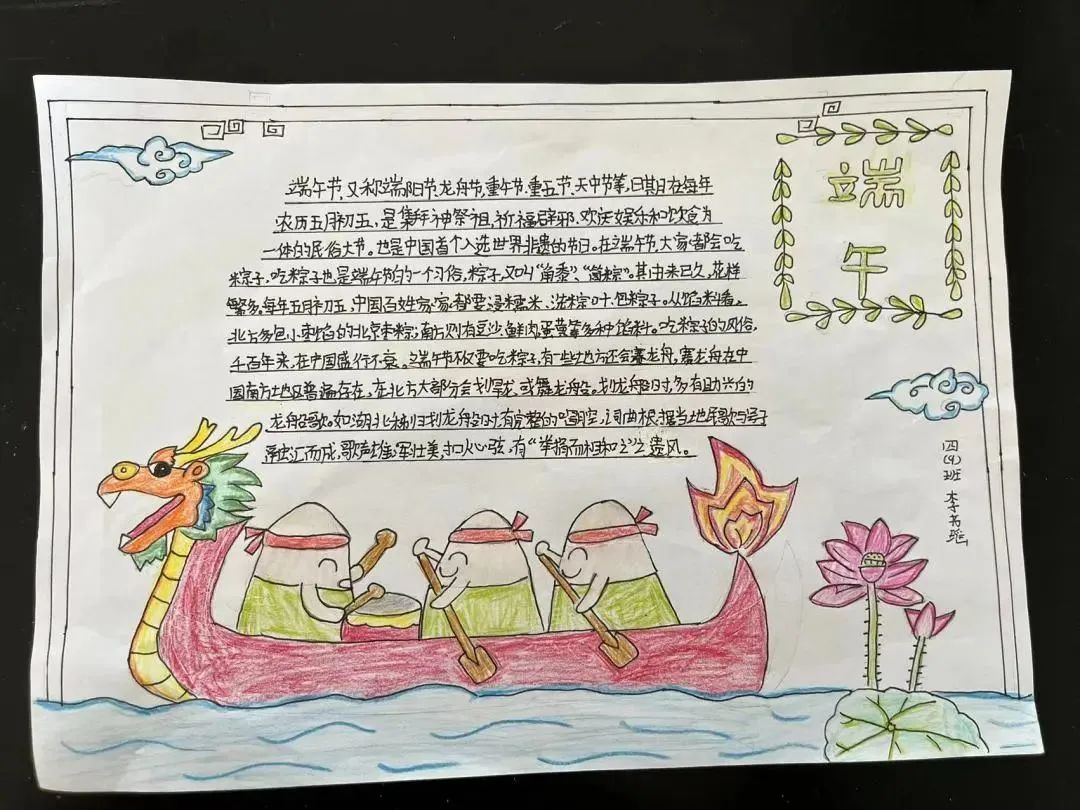 端午节,又称端阳节,龙舟节,重午节,重五节,天中节等,日期在每年
农历五月初五,是集拜神祭祖、祈福辟邪、欢庆娱乐和饮食为
一体的民俗大节。也是中国首个入选世界非遗的节日。在端午节,大家都会吃
粽子,吃粽子也是端午节的一个习俗,粽子,又叫“角黍”、“筒粽”。其由来已久,花样
繁多。每年五月初五,中国百姓家家都要浸糯米、洗粽叶、包粽子。从馅料看,
北方多包小枣馅的北京枣粽;南方则有豆沙、鲜肉、蛋黄等多种馅料。吃粽子的风俗,
千百年来,在中国盛行不衰。端午节不仅要吃粽子,有一些地方还会赛龙舟,赛龙舟在中
国南方地区普遍存在,在北方大部分会划旱龙,或舞龙船。划龙船时,多有助兴的
龙船歌。如湖北秭归划龙船时,有完整的唱腔,词曲根据当地民歌与号子
融汇而成,歌声雄浑壮美,扣人心弦,有“举揖而相和之”之遗风。
端
午
四(4)班 李